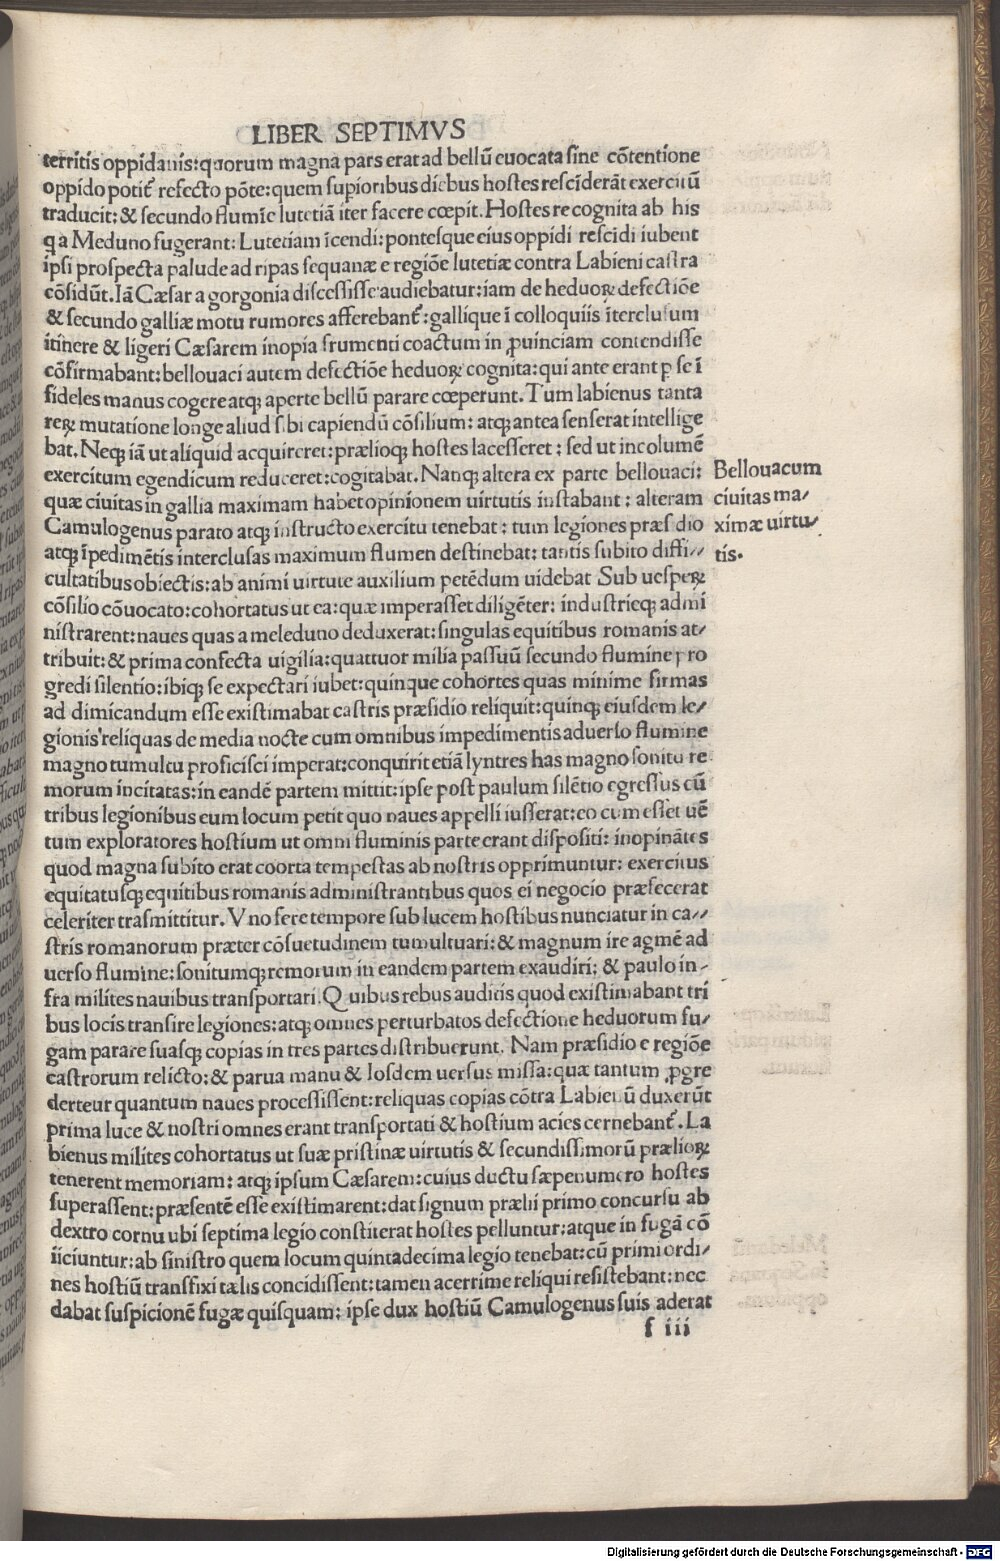 LIBER SEPTIMVS
territis oppidanis:quorum magna pars erat ad bellū euocata sine cōtentione
oppido potit᷑ refecto pōte:quem supioribus diebus hostes resciderāt exercitū
traducit:& secundo flumīe lutetiā iter facere cœpit.Hostes re cognita ab his
q a Meduno fugerant:Lutetiam īcendi:pontesque eius oppidi rescidi iubent
ipsi prospecta palude ad ripas sequanæ e regiōe lutetiæ contra Labieni castra
cōsidūt.Iā Cæsar a gorgonia discessisse audiebatur:iam de heduoꝝ defectiōe
& secundo galliæ motu rumores afferebant᷑:gallique ī colloquiis īterclusum
itinere & ligeri Cæsarem inopia frumenti coactum in ꝓuinciam contendisse
cōfirmabant:bellouaci autem defectiōe heduoꝝ cognita:qui ante erant p se ī
fideles manus cogere atqꝫ aperte bellū parare cœperunt.Tum labienus tanta
reꝝ mutatione longe aliud sibi capiendū cōsilium: atqꝫ antea senserat intellige
bat.Neqꝫ iā ut aliquid acquireret:prælioqꝫ hostes lacesseret: sed ut incolumē
exercitum egendicum reduceret:cogitabat.Nanqꝫ altera ex parte bellouaci:
quæ ciuitas in gallia maximam habet opinionem uirtutis instabant: alteram
Camulogenus parato atqꝫ instructo exercitu tenebat: tum legiones præsidio
atqꝫ īpedimētis interclusas maximum flumen destinebat: tantis subito diffi//
cultatibus obiectis:ab animi uirtute auxilium petēdum uidebat Sub uespeꝝ
cōsilio cōuocato:cohortatus ut ea:quæ imperasset diligēter: industrieqꝫ admi
nistrarent:naues quas a meleduno deduxerat:singulas equitibus romanis at/
tribuit:& prima confecta uigilia:quattuor milia passuū secundo flumine pro
gredi silentio:ibiqꝫ se expectari iubet:quinque cohortes quas minime firmas
ad dimicandum esse existimabat castris præsidio reliquit:quinqꝫ eiusdem le/
gionis reliquas de media nocte cum omnibus impedimentis aduerso flumine
magno tumultu proficisci imperat:conquirit etiā lyntres has magno sonitu re
morum incitatas:in eandē partem mittit:ipse post paulum silētio egressus cū
tribus legionibus eum locum petit quo naues appelli iusserat:eo cum esset uē
tum exploratores hostium ut omni fluminis parte erant dispositi: inopinātes
quod magna subito erat coorta tempestas ab nostris opprimuntur: exercitus
equitatusqꝫ equitibus romanis administrantibus quos ei negocio præfecerat
celeriter trasmittitur.Vno fere tempore sub lucem hostibus nunciatur in ca//
stris romanorum præter cōsuetudinem tumultuari:& magnum ire agmē ad
uerso flumine:sonitumqꝫ remorum in eandem partem exaudiri: & paulo in/
fra milites nauibus transportari.Quibus rebus auditis quod existimabant tri
bus locis transire legiones:atqꝫ omnes perturbatos defectione heduorum fu/
gam parare suasqꝫ copias in tres partes distribuerunt. Nam præsidio e regiōe
castrorum relicto:& parua manu & Iosdem uersus missa:quæ tantum ꝓgre
derteur quantum naues processissent:reliquas copias cōtra Labienū duxerūt
prima luce & nostri omnes erant transportati & hostium acies cernebant᷑.La
bienus milites cohortatus ut suæ pristinæ uirtutis & secundissimorū prælioꝝ
tenerent memoriam: atqꝫ ipsum Cæsarem:cuius ductu sæpenumero hostes
superassent:præsentē esse existimarent:dat signum prælii primo concursu ab
dextro cornu ubi septima legio constiterat hostes pelluntur:atque in fugā cō
iiciuntur:ab sinistro quem locum quintadecima legio tenebat:cū primi ordi/
nes hostiū transfixi tælis concidissent:tamen acerrime reliqui resistebant:nec
dabat suspicionē fugæ quisquam: ipse dux hostiū Camulogenus suis aderat
f iii
Bellouacum
ciuitas ma/
ximæ uirtu/
tis.
Digitalisierung gefördert durch die Deutsche Forschungsgemeinschaft - DFG